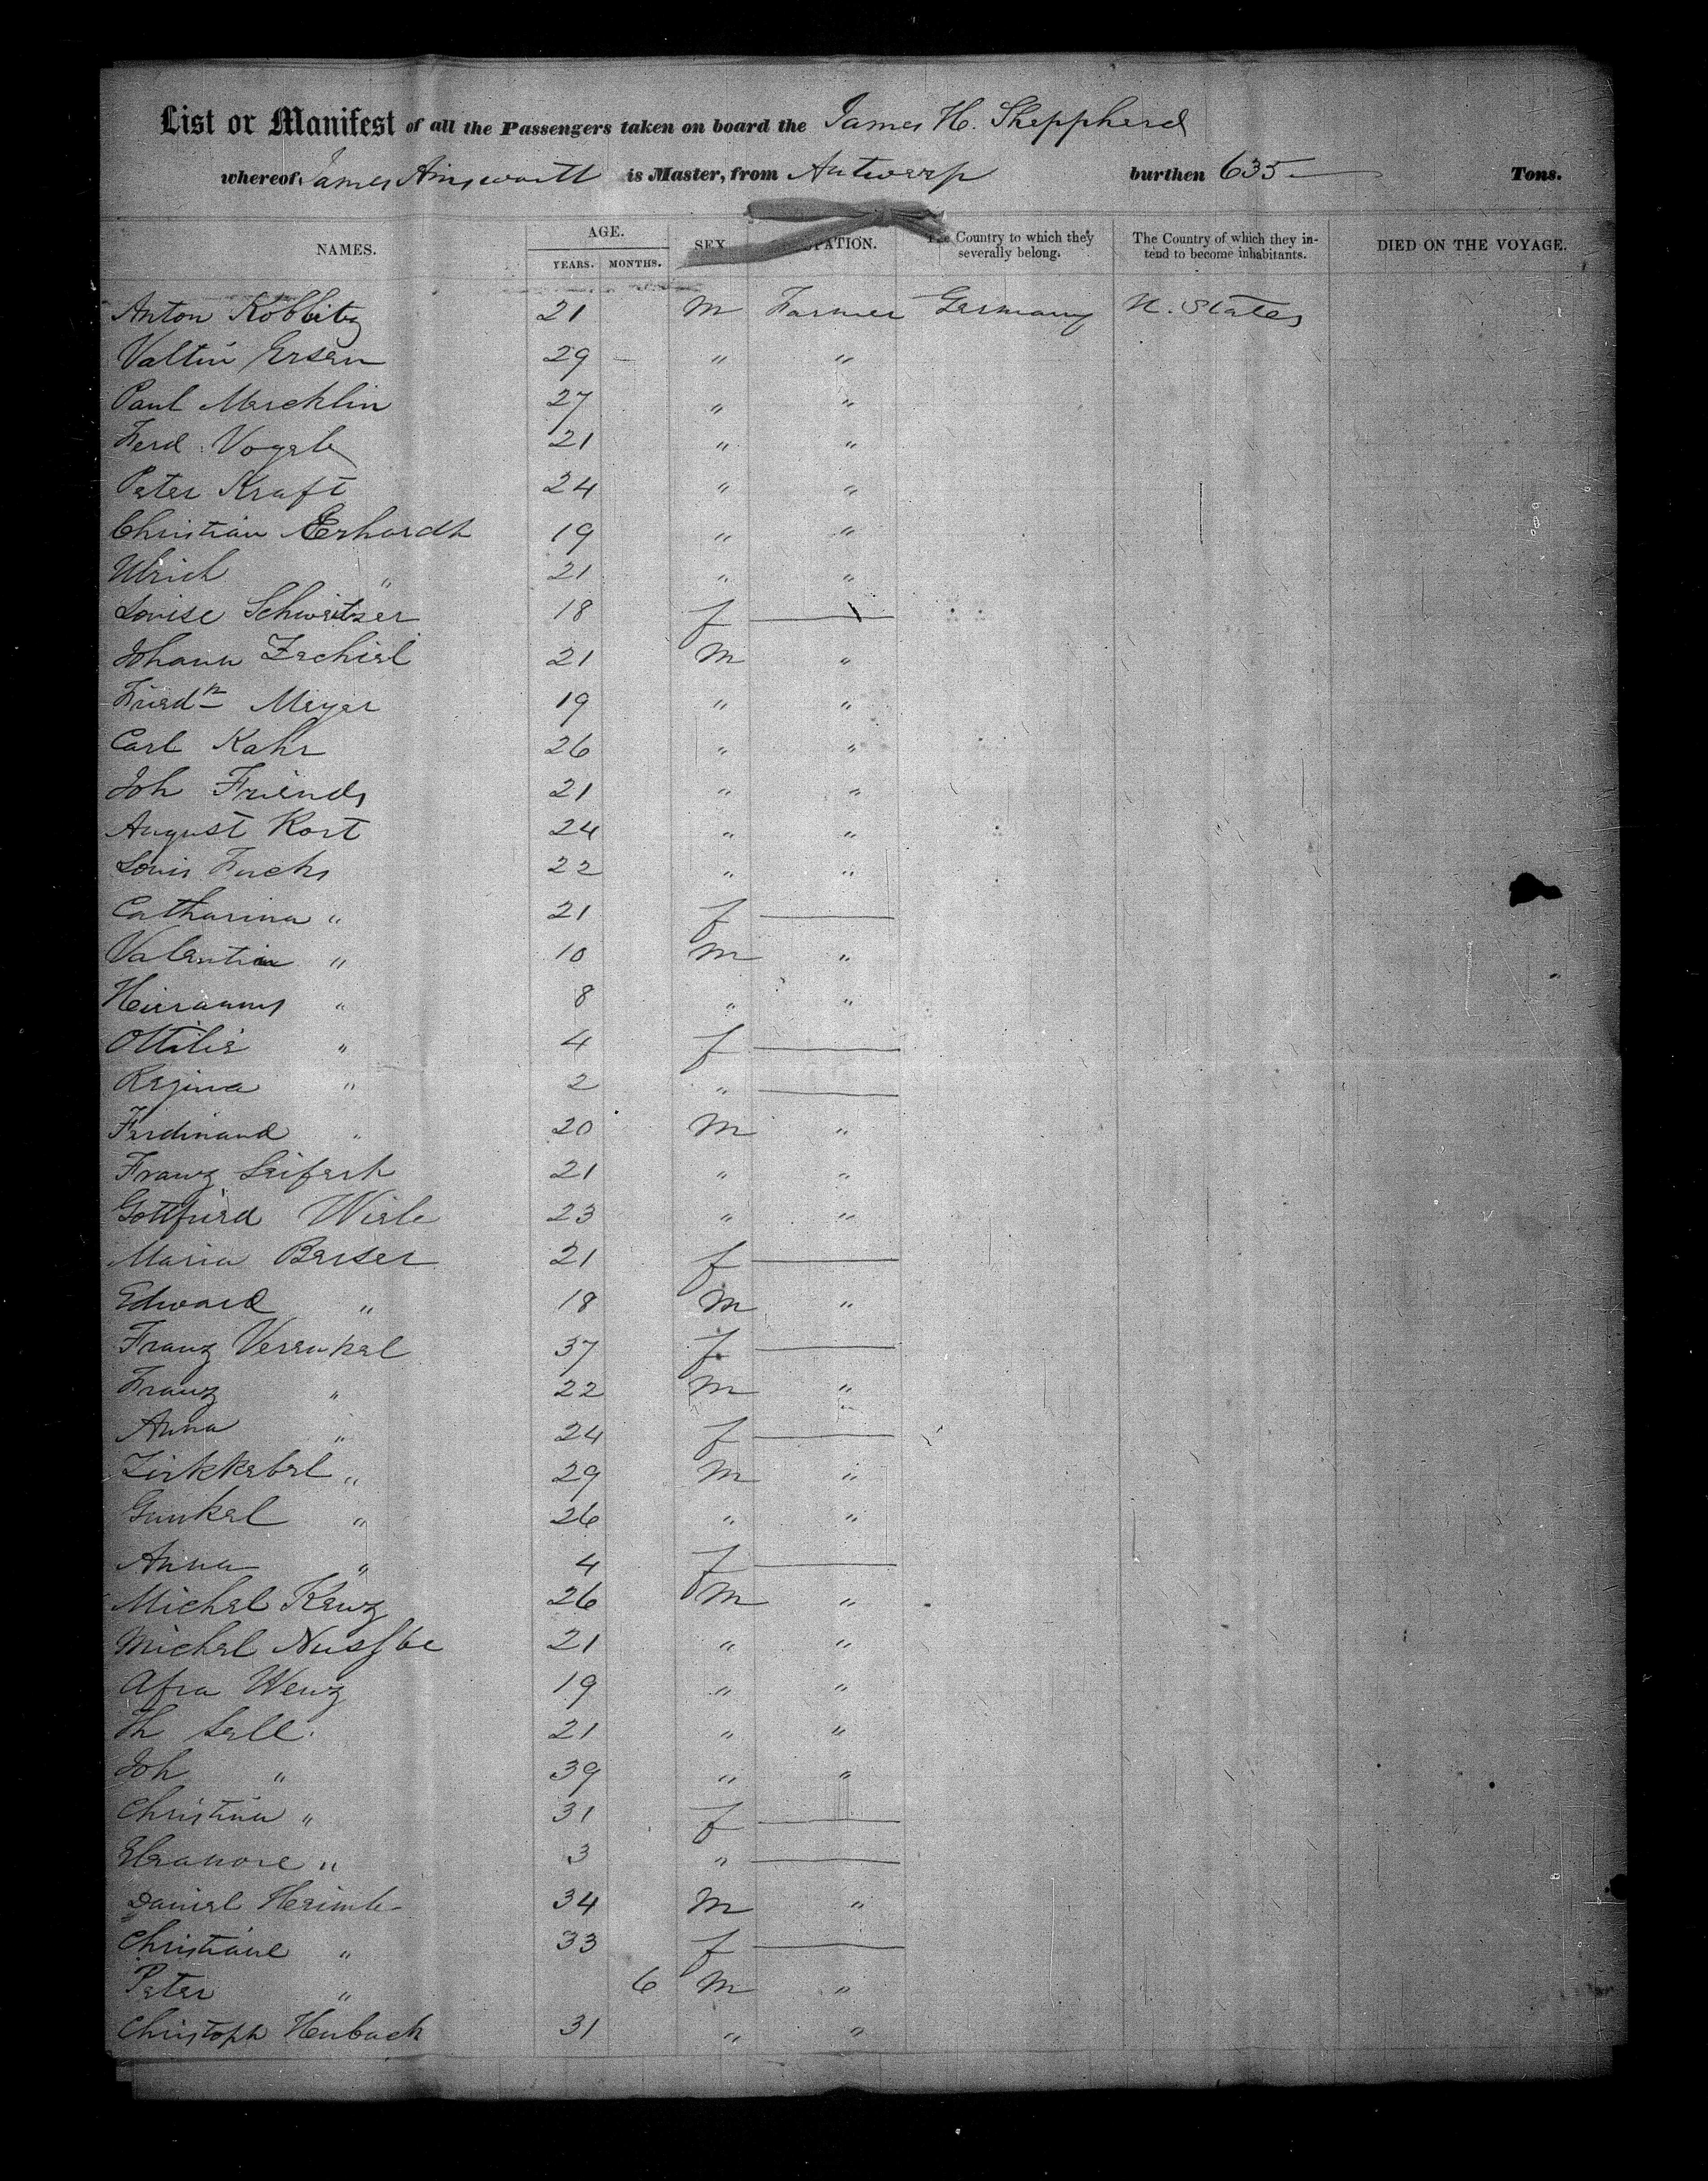 List or Manifest of all the Passengers taken on board the James H. Sheppherd
whereof James Ainsworth is Master, from Antwerp burthen 635 Tons.
NAMES. AGE. SEX OCCUPATION. The Country to which they severally belong. The Country of which they intend to become inhabitants. DIED ON THE VOYAGE.
YEARS. MONTHS.
Anton Kobbitz 21 M Farmer Germany U. States
Valtin Ersen 29 — " "
Paul Mercklin 27 " "
Ferd. Vogele 21 " "
Peter Kraft 24 " "
Christian Erhardt 19 " "
Ulrich " 21 " "
Louise Schweitzer 18 f —
Johann Zechiel 21 M "
Friedr Meyer 19 " "
Carl Kahr 26 " "
Joh Friends 21 " "
August Kort 24 " "
Louis Fuchs 22 " "
Catharina " 21 f —
Valentin " 10 M "
" 8 " "
Ottilie " 4 f —
Regina " 2 " —
Ferdinand " 20 M "
Franz Seifert 21 " "
Gottfried Wisle 23 " "
Maria Berser 21 f —
Edward " 18 M "
Franz Verenkel 37 f —
Franz " 22 M "
Anna " 24 f —
Zirkkebel " 29 M "
Gunkel " 26 " "
Anna " 4 f —
Michel Kenz 26 M "
Michel 21 " "
Afra Wenz 19 " "
Th Sell. 21 " "
Joh " 39 " "
Christina " 31 f —
Eleanore " 3 " —
Daniel Heimle 34 M "
Christiane " 33 f —
Peter " 6 M "
Christoph Heubach 31 " "